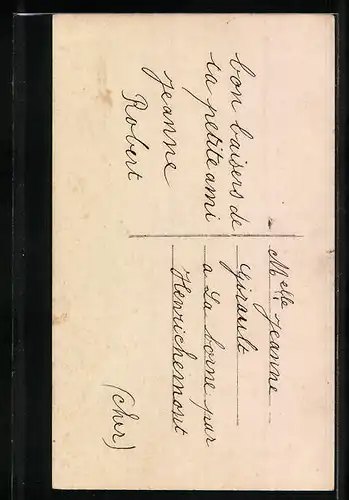 bon baisers de
ta petite ami
Jeanne
Robert
Melle Jeanne
Girault
a La borne par
Henrichemont
(Cher)